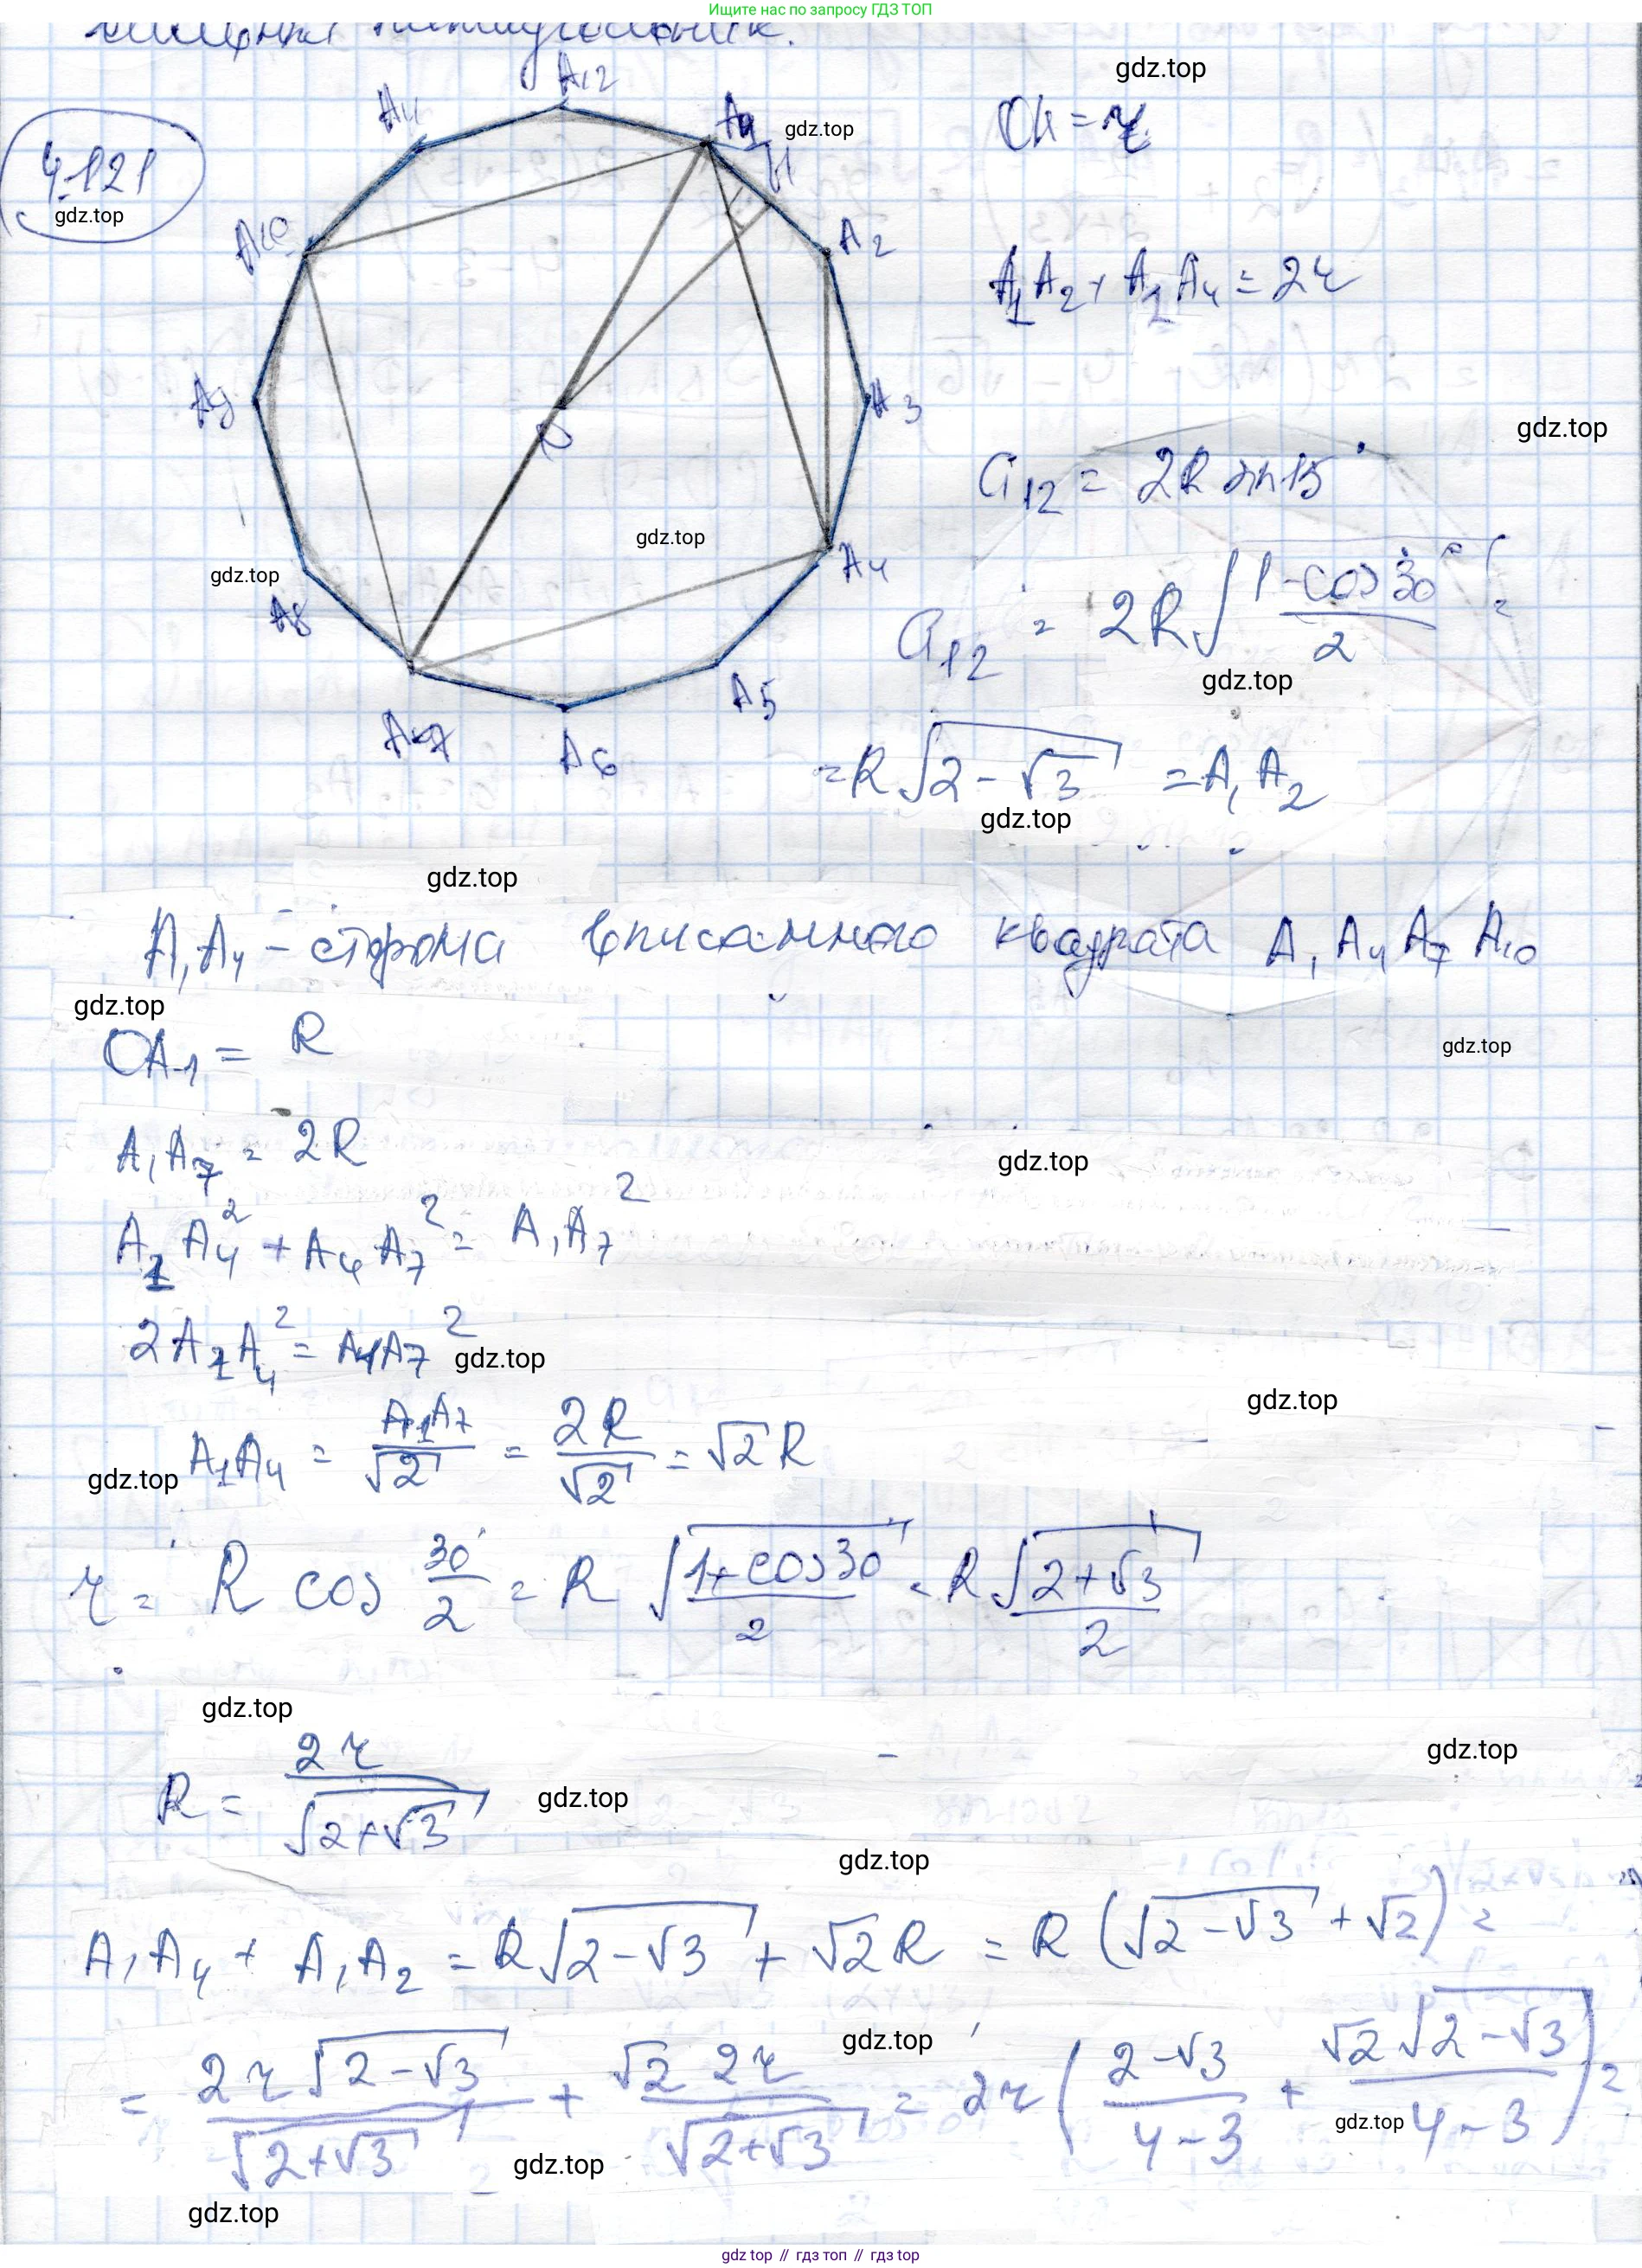 Ищите нас по запросу ГДЗ ТОП
пятиугольник.
4.121
gdz.top
A11
A12
A1
gdz.top
H
A10
A2
A9
A3
O
A8
A4
A7
A6
A5
gdz.top
gdz.top
gdz.top
OH = r
A₁A₂ + A₁A₄ = 2r
gdz.top
a₁₂ = 2R sin 15°
a₁₂ = 2R √((1 - cos 30°)/2) =
gdz.top
= R √(2 - √3) = A₁A₂
gdz.top
gdz.top
A₁A₄ - сторона вписанного квадрата A₁A₄A₇A₁₀
gdz.top
OA₁ = R
gdz.top
A₁A₇ = 2R
gdz.top
A₁A₄² + A₄A₇² = A₁A₇²
2A₁A₄² = A₁A₇²
gdz.top
gdz.top
A₁A₄ = A₁A₇/√2 = 2R/√2 = √2 R
gdz.top
r = R cos 30°/2 = R √((1 + cos 30°)/2) = R √(2 + √3)/2
gdz.top
gdz.top
R = 2r/√(2 + √3)
gdz.top
gdz.top
A₁A₄ + A₁A₂ = R √(2 - √3) + √2 R = R (√(2 - √3) + √2) =
gdz.top
= 2r √(2 - √3)/√(2 + √3) + √2 2r/√(2 + √3) = 2r ((2 - √3)/(4 - 3) + √2 √(2 - √3)/(4 - 3)) =
gdz.top
gdz.top
gdz.top
gdz top // гдз топ // гдз top